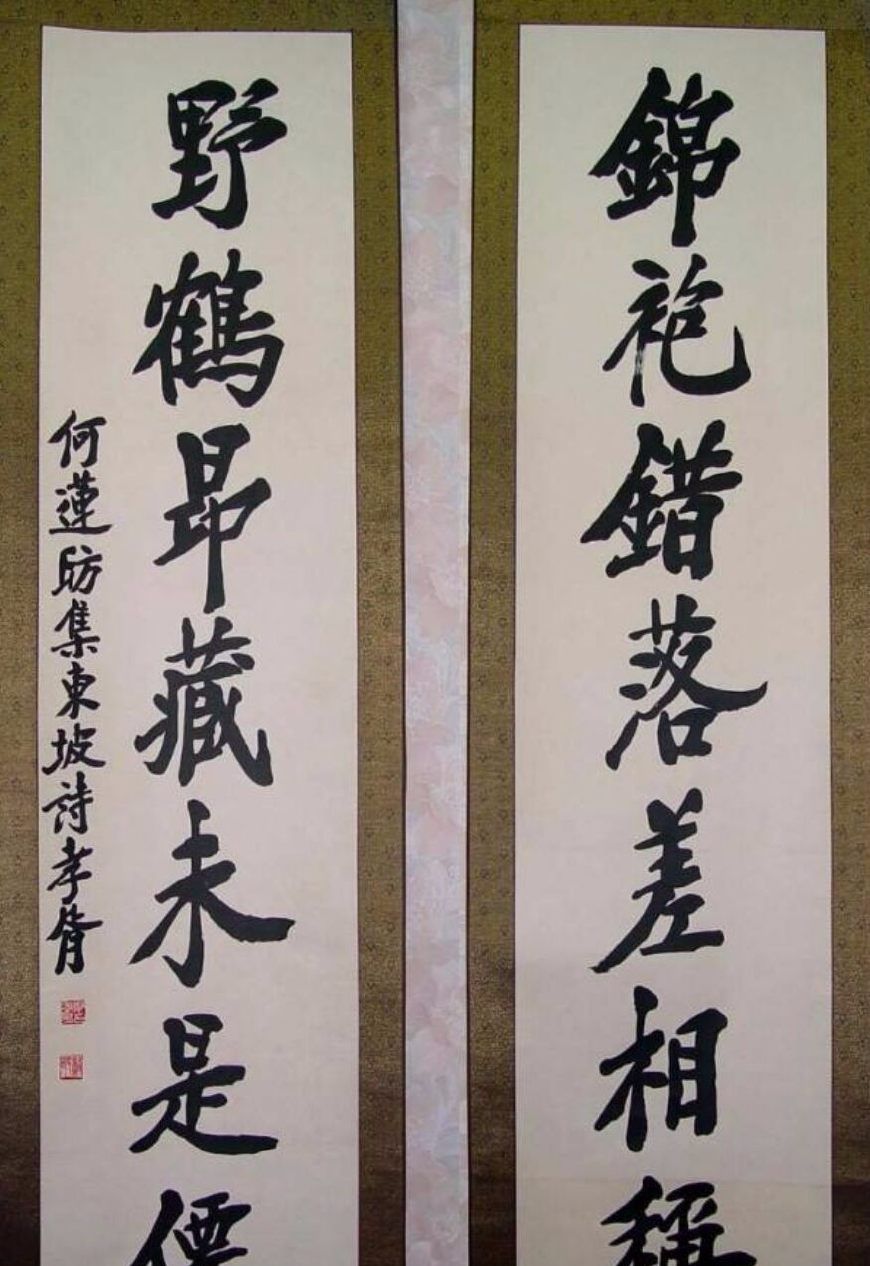 錦袍錯落差相稱
野鶴昂藏未是僊
何蓮舫集東坡詩孝胥